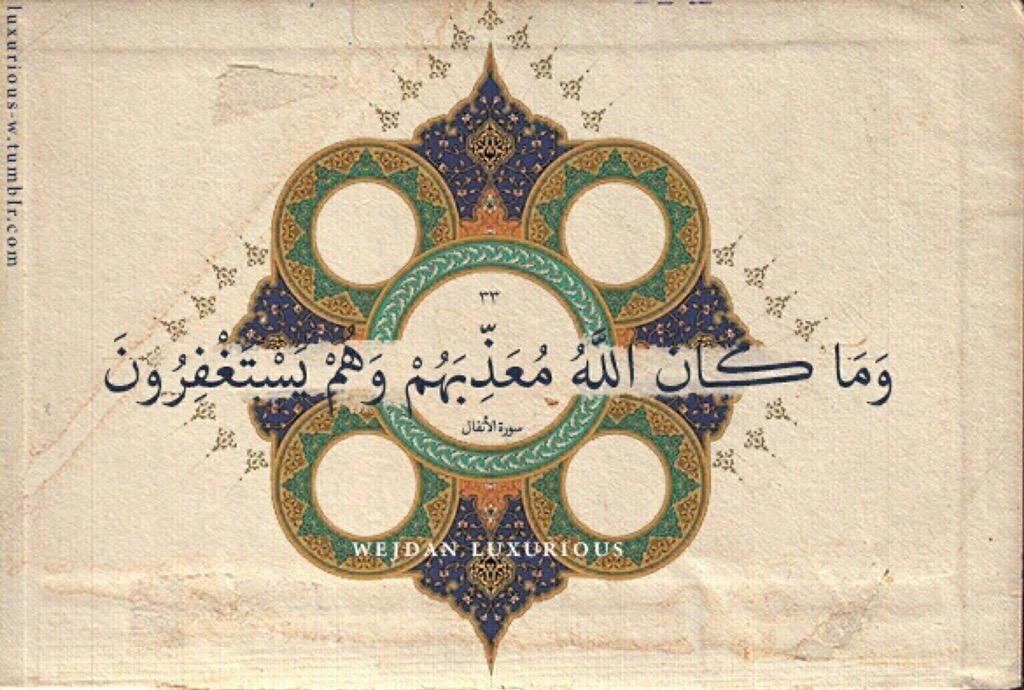 luxurious-w.tumblr.com
٣٣
وَمَا كَانَ اللَّهُ مُعَذِّبَهُمْ وَهُمْ يَسْتَغْفِرُونَ
سورة الأنفال
WEJDAN LUXURIOUS